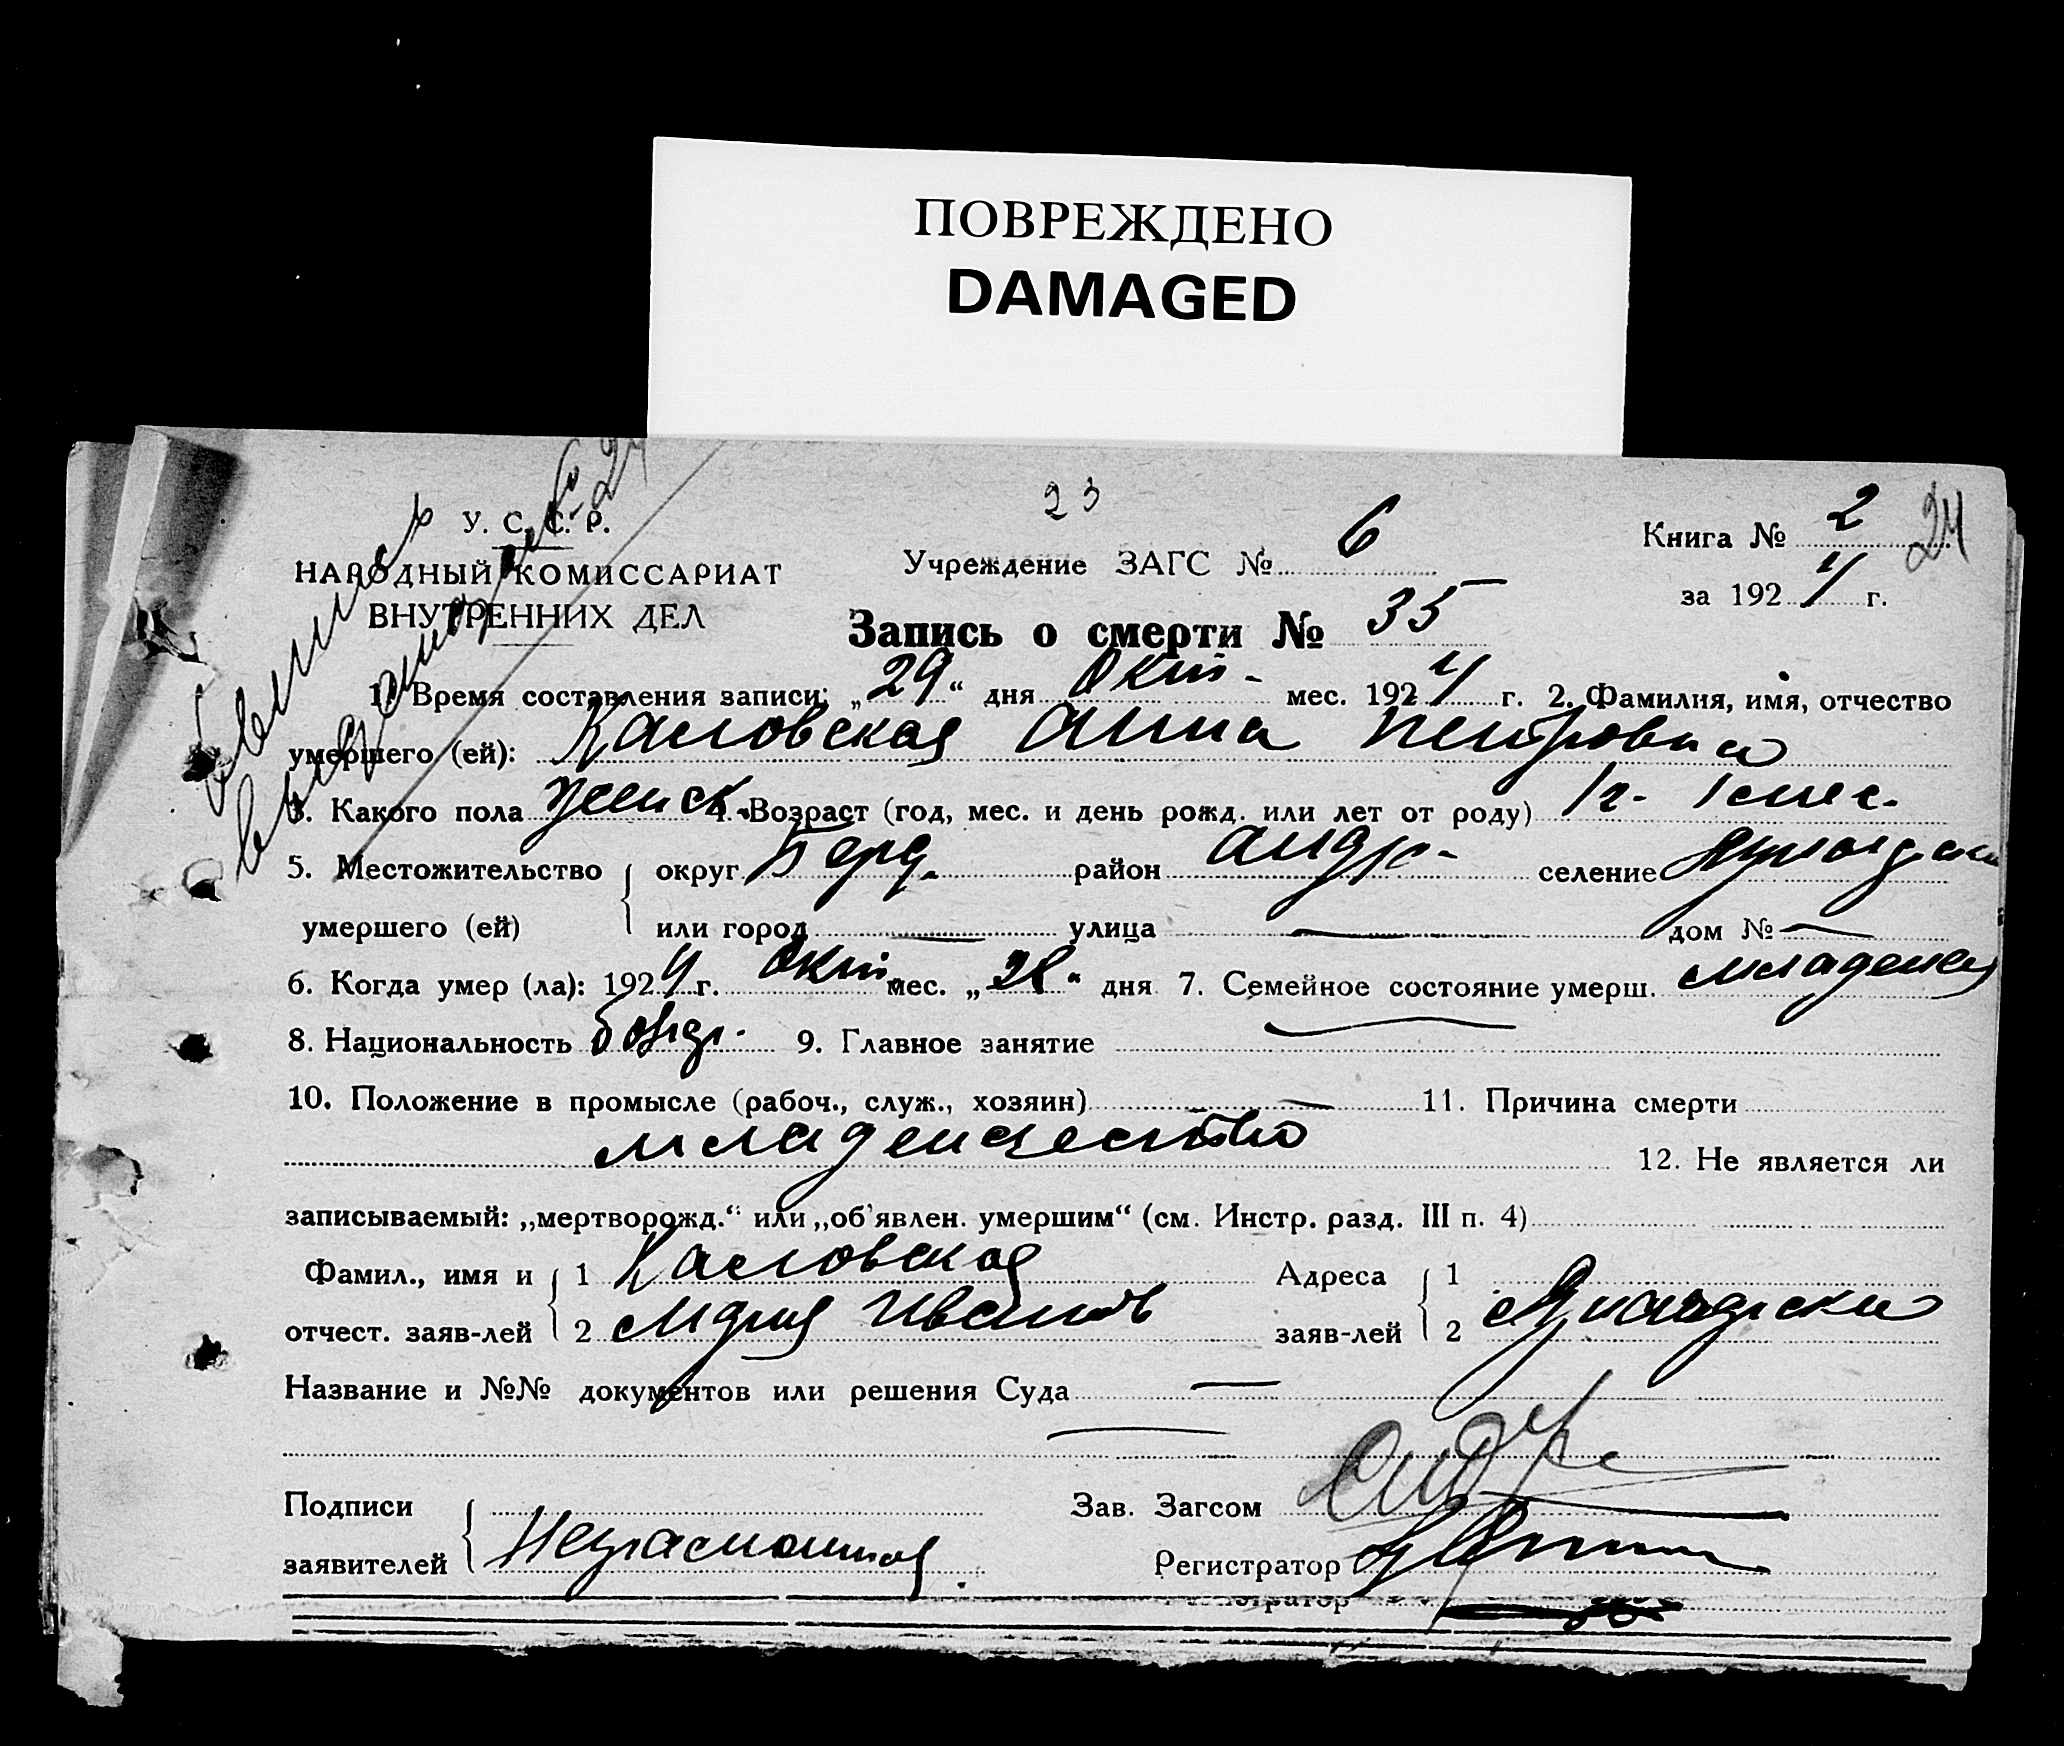 ПОВРЕЖДЕНО
DAMAGED
23
24
У. С. С. Р.
НАРОДНЫЙ КОМИССАРИАТ
ВНУТРЕННИХ ДЕЛ
Учреждение ЗАГС № 6
Книга № 2
за 1924 г.
Запись о смерти № 35
1. Время составления записи: „29“ дня Окт- мес. 1924 г. 2. Фамилия, имя, отчество
умершего (ей): Касловская Анна Петровна
3. Какого пола женск. 4. Возраст (год, мес. и день рожд. или лет от роду) 1 г. 1 мес.
5. Местожительство умершего (ей) { округ Берд. район Андр- селение
или город — улица — дом № —
6. Когда умер (ла): 1924 г. Окт. мес. „28“ дня 7. Семейное состояние умерш. младенец
8. Национальность болгр. 9. Главное занятие —
10. Положение в промысле (рабоч., служ., хозяин) — 11. Причина смерти
младенчество 12. Не является ли
записываемый: „мертворожд.“ или „об'явлен. умершим“ (см. Инстр. разд. III п. 4)
Фамил., имя и отчест. заяв-лей { 1 Касловская
2 Мария Иванов
Адреса заяв-лей { 1
2
Название и №№ документов или решения Суда —
Подписи заявителей { Неграмотная
Зав. Загсом
Регистратор